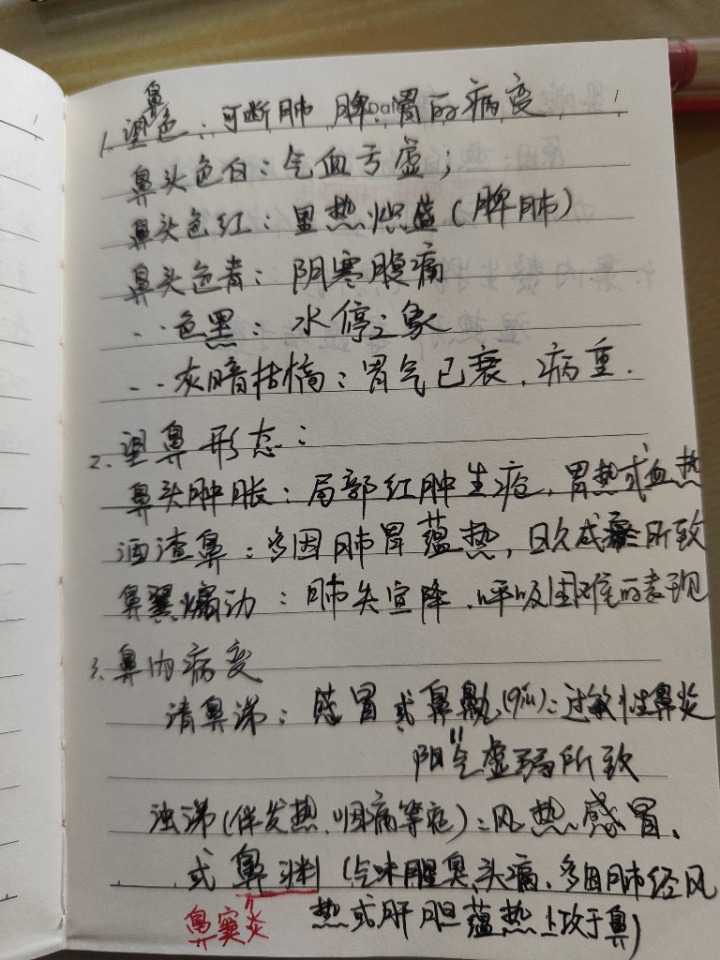 1. 望鼻色：可断肺、脾、胃的病变
鼻头色白：气血亏虚；
鼻头色红：里热炽盛（脾肺）
鼻头色青：阴寒腹痛
‥色黑：水停之象
‥灰暗枯槁：胃气已衰，病重.
2. 望鼻形态：
鼻头肿胀：局部红肿生疮，胃热或血热
酒渣鼻：多因肺胃蕴热，日久成瘀所致
鼻翼煽动：肺失宣降、呼吸困难的表现
3. 鼻内病变
清鼻涕：感冒或鼻鼽(qiu)：过敏性鼻炎
阳气虚弱所致
浊涕(伴发热、咽痛等症)：风热感冒、
或鼻渊(气味腥臭、头痛、多因肺经风
鼻窦炎
热或肝胆蕴热上攻于鼻)